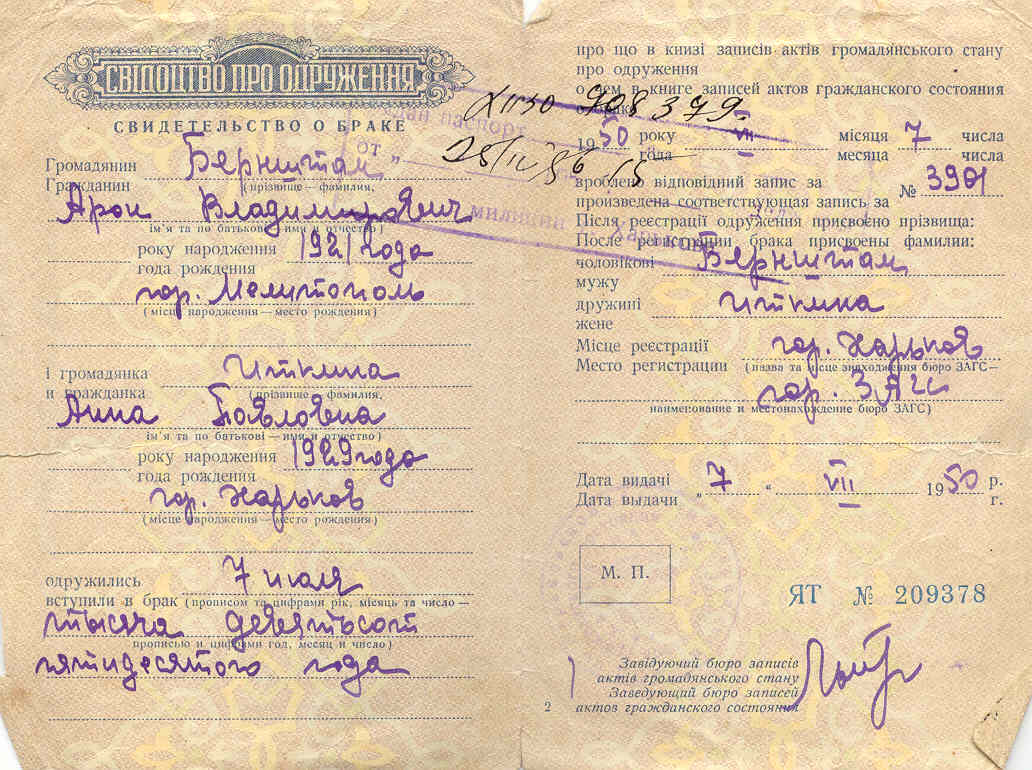 СВІДОЦТВО ПРО ОДРУЖЕННЯ
СВИДЕТЕЛЬСТВО О БРАКЕ
Громадянин Бернштам
Гражданин (прізвище — фамилия,
Арон Владимирович
ім'я та по батькові — имя и отчество)
року народження 1921 года
года рождения
гор. Мелитополь
(місце народження — место рождения)
і громадянка Иткина
и гражданка (прізвище — фамилия,
Анна Павловна
ім'я та по батькові — имя и отчество)
року народження 1929 года
года рождения
гор. Харьков
(місце народження — место рождения)
одружились 7 июля
вступили в брак (прописом та цифрами рік, місяць та число —
тысяча девятьсот
прописью и цифрами год, месяц и число)
пятидесятого года
про що в книзі записів актів громадянського стану
про одруження
о чем в книге записей актов гражданского состояния
о браке
1950 року VII місяця 7 числа
года месяца числа
вроблено відповідний запис за № 3901
произведена соответствующая запись за
Після реєстрації одруження присвоєно прізвища:
После регистрации брака присвоены фамилии:
чоловікові Бернштам
мужу
дружині Иткина
жене
Місце реєстрації гор. Харьков
Место регистрации (назва та місце знаходження бюро ЗАГС —
гор. ЗАГС
наименование и местонахождение бюро ЗАГС)
Дата видачі
Дата выдачи „ 7 “ VII 1950 р.
г.
М. П.
ЯТ № 209378
Завідуючий бюро записів
актів громадянського стану
Заведующий бюро записей
актов гражданского состояния
2
908379.
дан паспорт
от „
25/IV 86
милиции